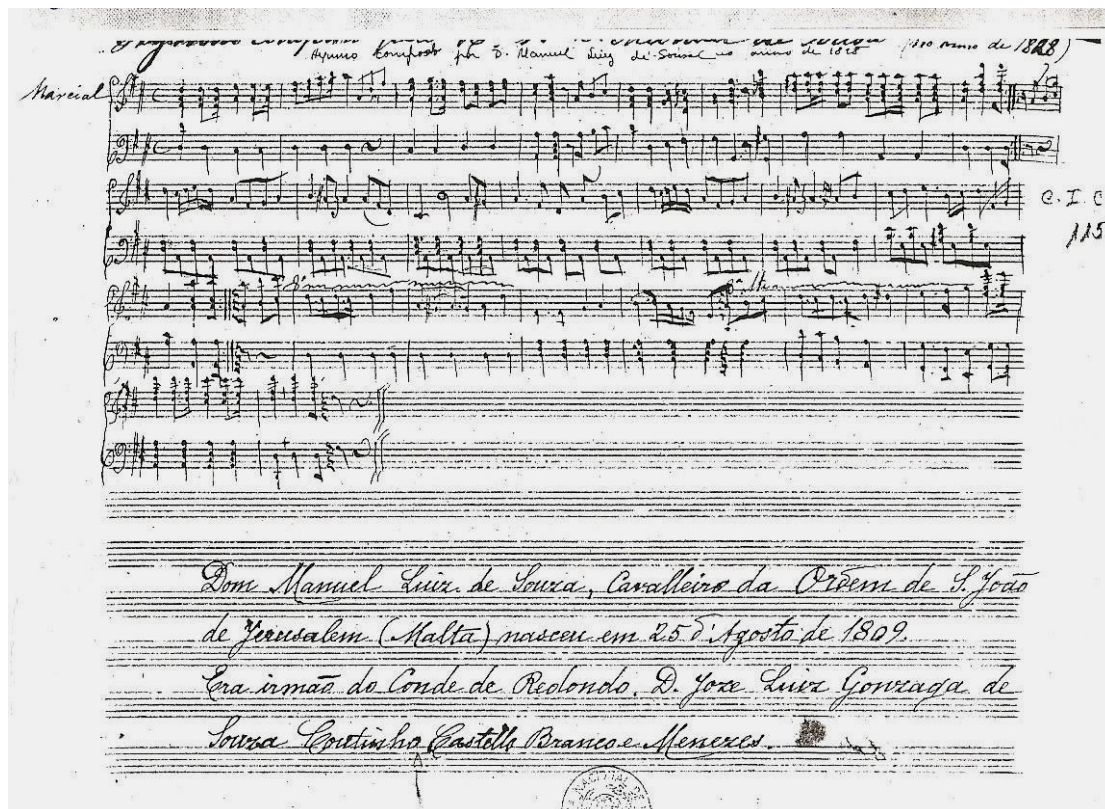 Hymno Composto por D. Manuel Luiz de Sousa (no anno de 1828)
Hymno Composto por D. Manuel Luiz de Sousa no anno de 1828
Marcial
C. I. C
115
8ª
8ª alta
Dom Manuel Luiz de Souza, Cavalleiro da Ordem de S. João
de Jerusalem (Malta) nasceu em 25 d'Agosto de 1809.
Era irmão do Conde de Redondo. D. Joze Luiz Gonzaga de
Souza Coutinho Castello Branco e Menezes.
NACIONAL